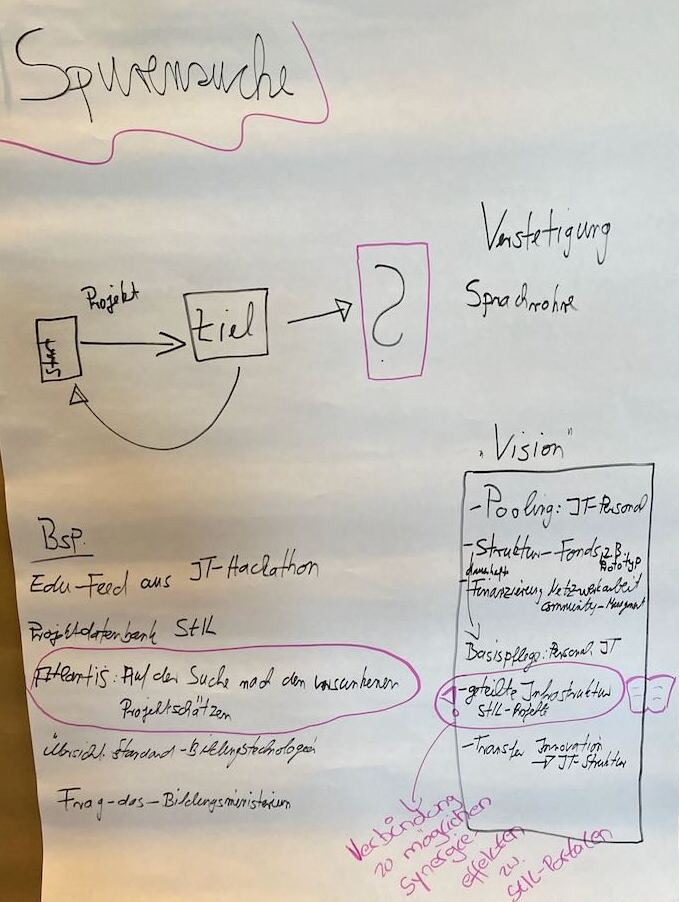 Spurensuche
Projekt
Start
Ziel
?
Verstetigung
Sprachrohre
Bsp.
Edu-Feed aus IT-Hackathon
Projektdatenbank StIL
Atlantis: Auf der Suche nach den versunkenen
Projektschätzen
Übersicht Standard-Bildungstechnologien
Frag-das-Bildungsministerium
„Vision"
- Pooling: IT-Personal
- Struktur-Fonds z.B.
Prototyp
dauerhafte
- Finanzierung Netzwerkarbeit
Community-Mangment
Basispflege: Personal, IT
- geteilte Infrastruktur
StIL-Projekte
- Transfer Innovation
→ IT-Struktur
Verbindung
zu möglichen
Synergie-
effekten
zw.
StIL-Portalen